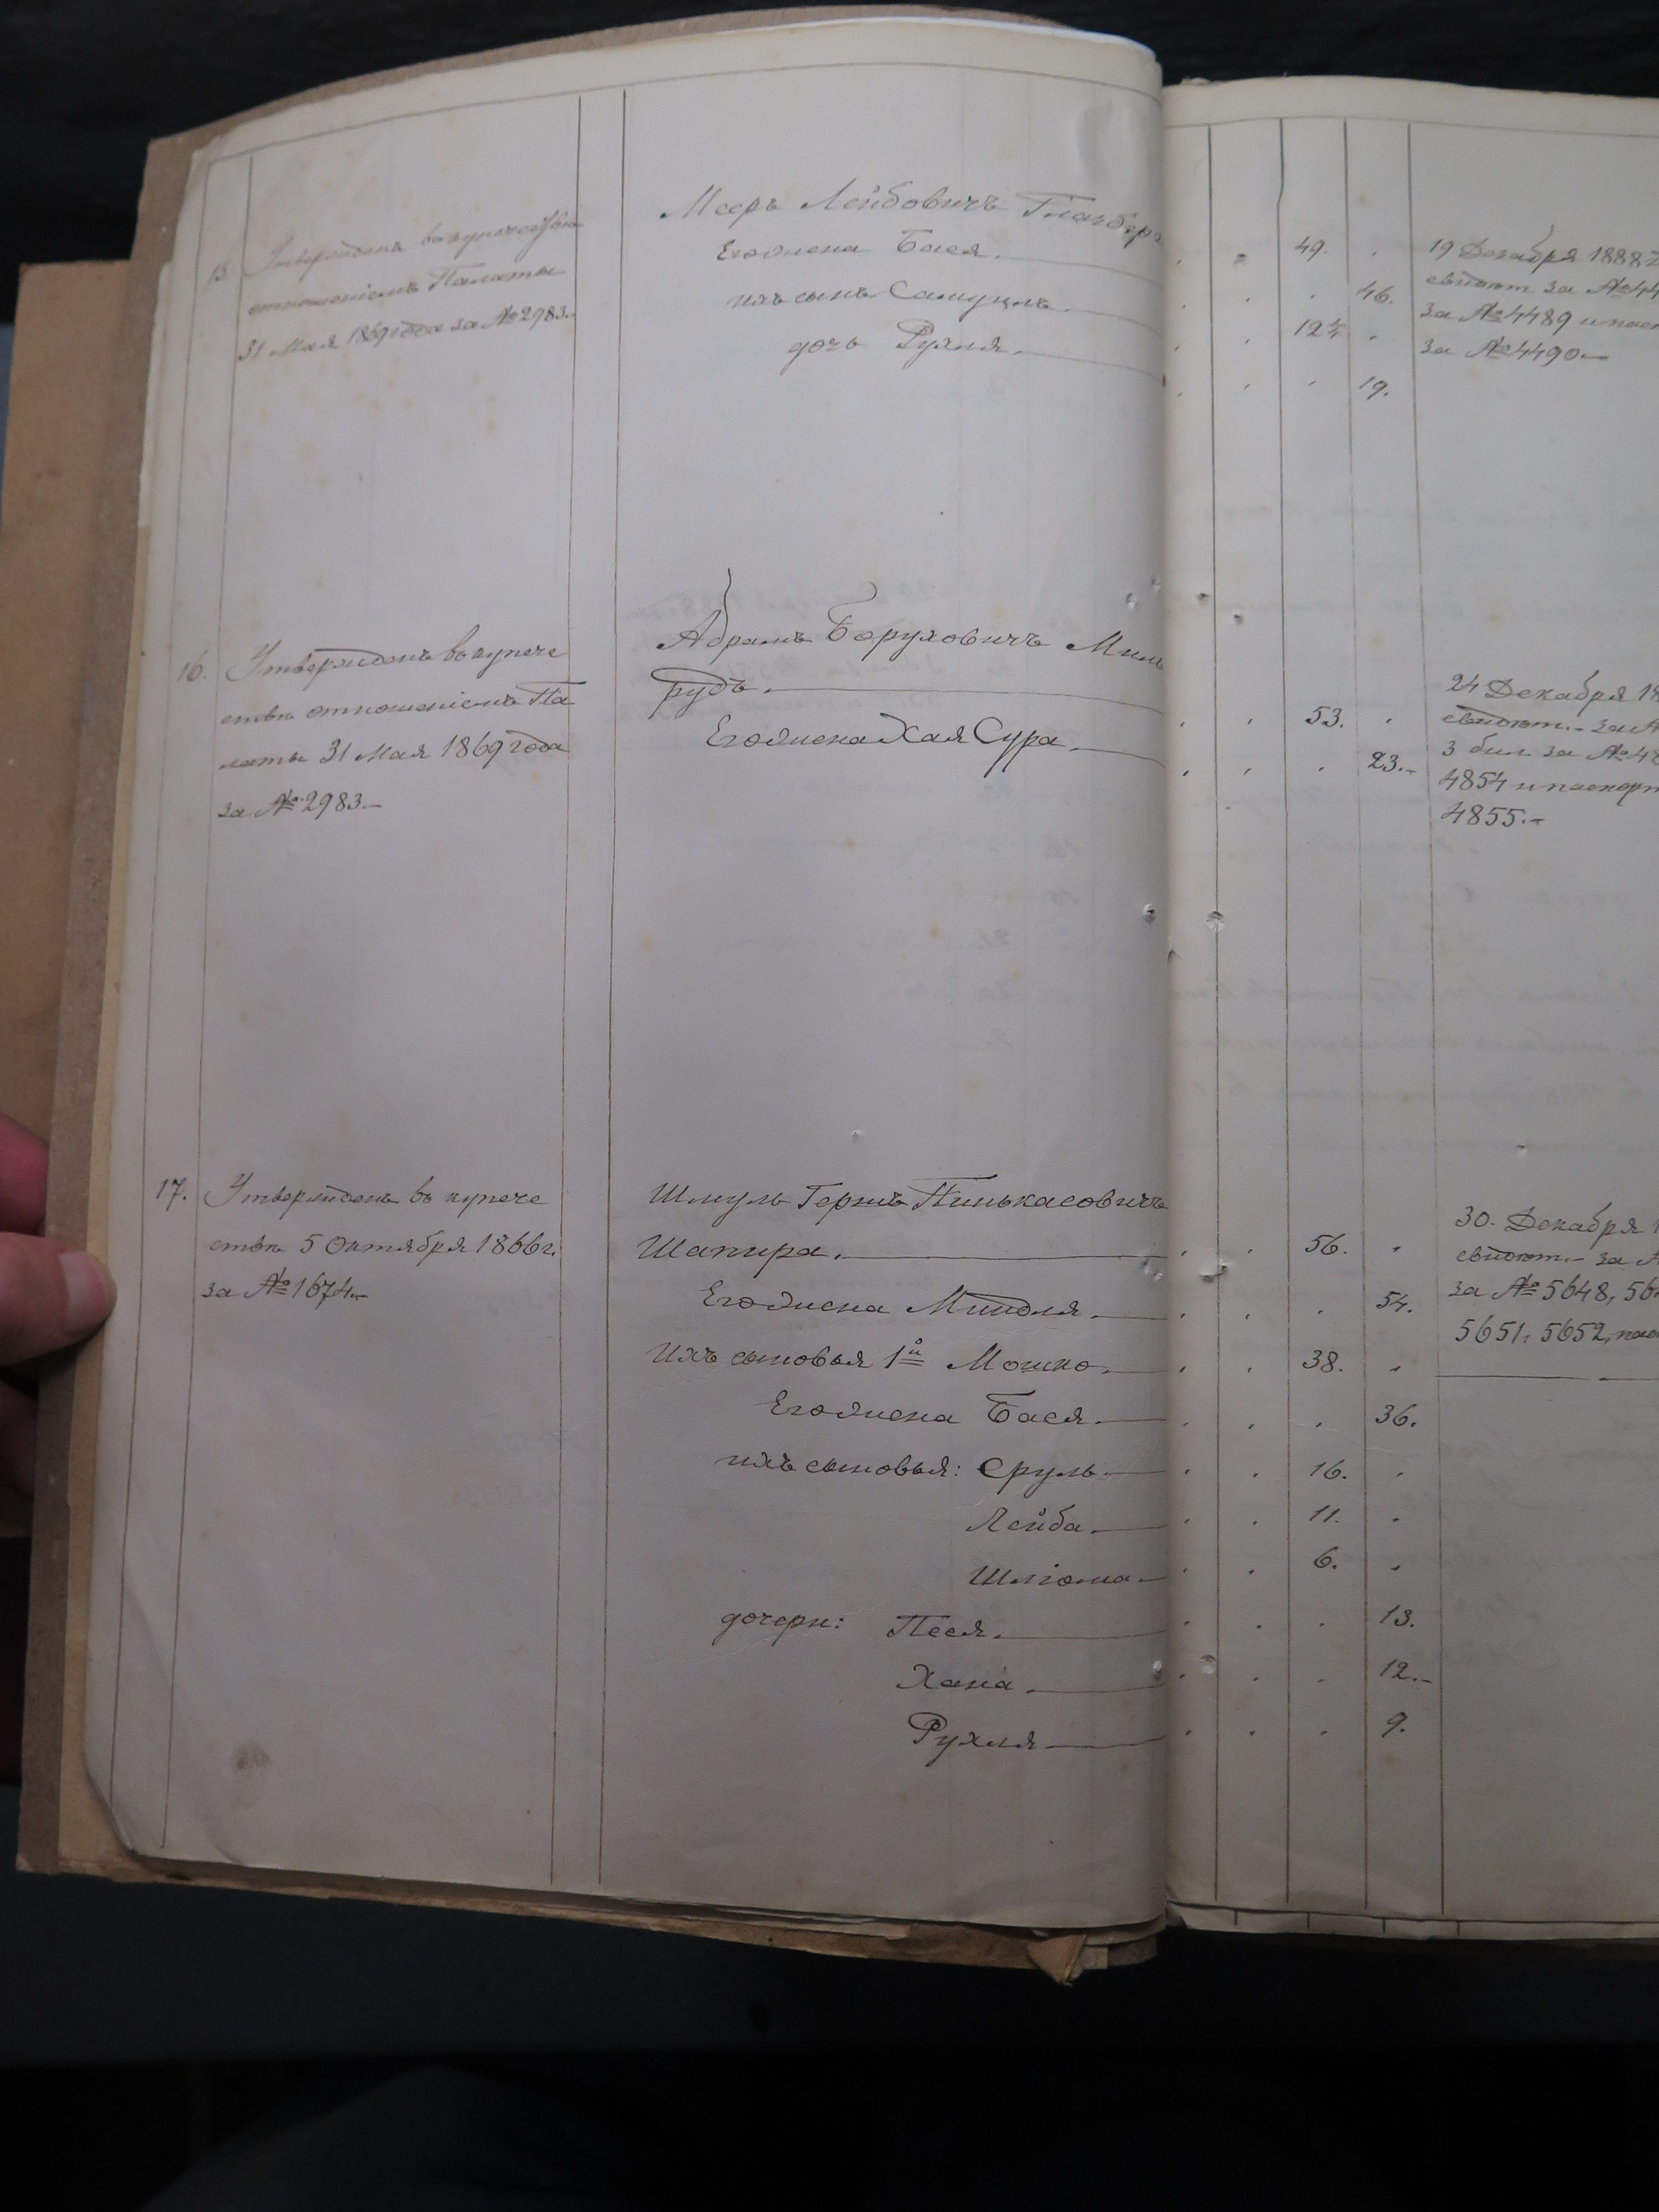 15. Утвержденъ въ купечествѣ
отношеніемъ Палаты
31 Мая 1869 года за № 2983.
Мееръ Лейбовичъ
Его жена Бася. 49.
ихъ сынъ Самуилъ 46.
дочь Рухля. 12
19.
19 Декабря 1888
свидѣт. за № 44
за № 4489 и пасп
за № 4490.—
16. Утвержденъ въ купече
ствѣ отношеніемъ Па
латы 31 Мая 1869 года
за № 2983.—
Абрамъ Боруховичъ Миль
рудъ. 53.
Его жена Хая Сура. 23.—
24 Декабря 18
свидѣт.— за №
3 бил за № 48
4854 и паспорт
4855.—
17. Утвержденъ въ купече
ствѣ 5 Октября 1866 г.
за № 1674.—
Шмуль Гершъ Пинькасовичъ
Шапира. 56.
Его жена Миндля. 54.
Ихъ сыновья 1й Мошко. 38.
Его жена Бася. 36.
ихъ сыновья: Сруль. 16.
Лейба. 11.
Шліома 6.
дочери: Песя. 13.
Хана. 12.—
Рухля 9.
30. Декабря 1
свидѣт.— за №
за № 5648, 56
5651, 5652, пас